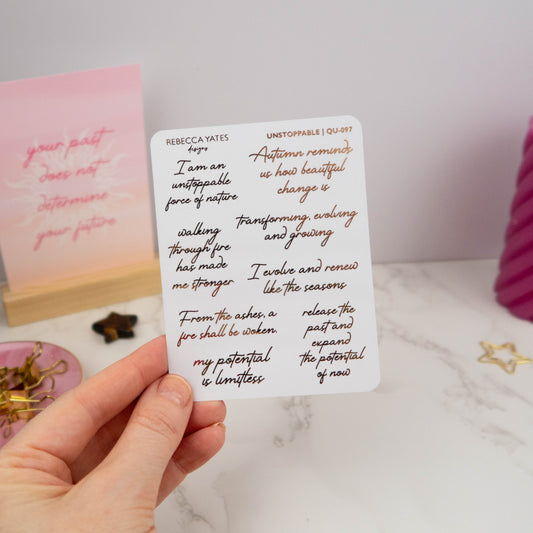 your past
does not
determine
your future
REBECCA YATES
designs
UNSTOPPABLE | QU-097
I am an
unstoppable
force of nature
Autumn reminds
us how beautiful
change is
walking
through fire
has made
me stronger
transforming, evolving
and growing
I evolve and renew
like the seasons
From the ashes, a
fire shall be woken.
my potential
is limitless
release the
past and
expand
the potential
of now